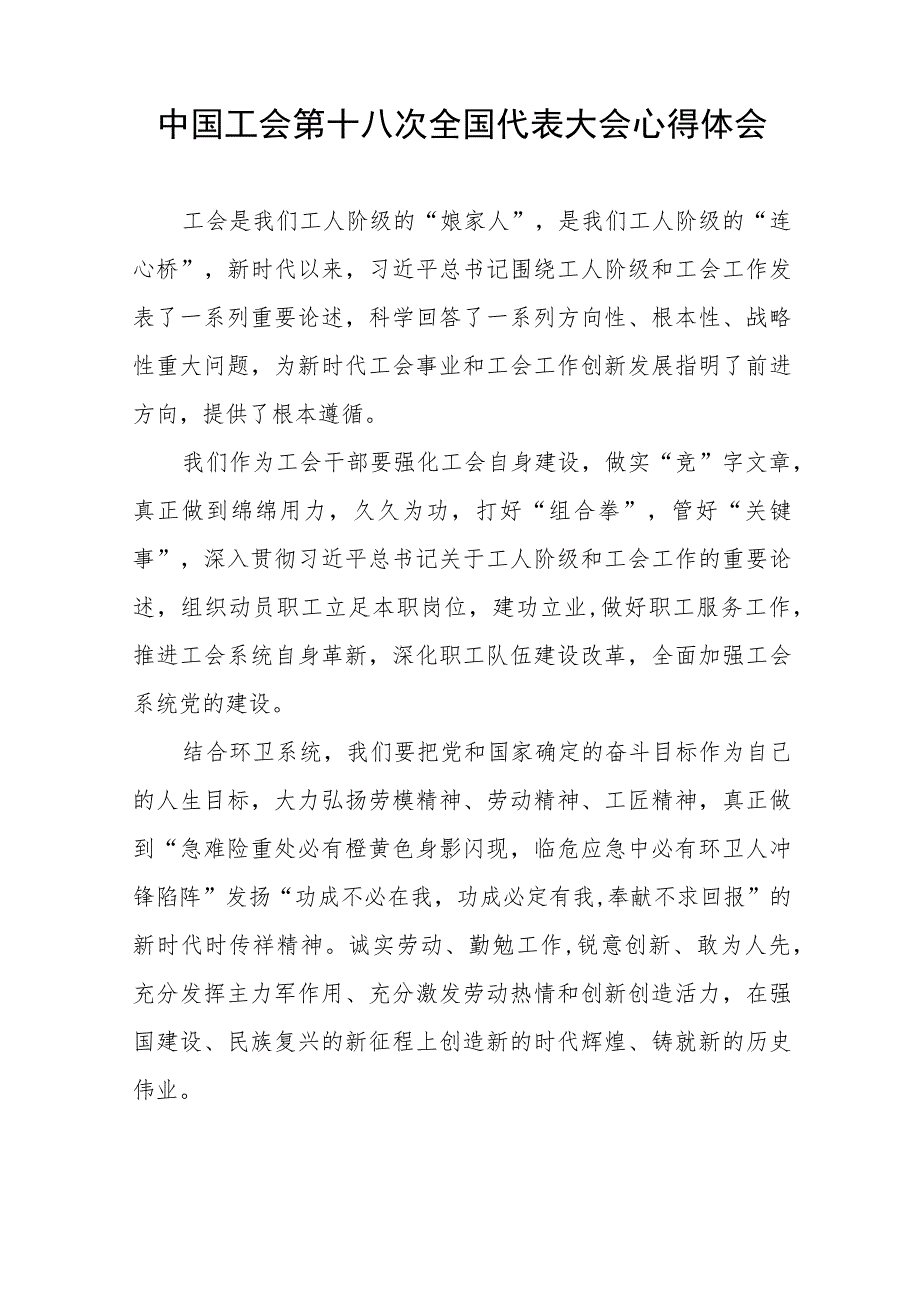 中国工会第十八次全国代表大会心得体会
工会是我们工人阶级的“娘家人”，是我们工人阶级的“连
心桥”，新时代以来，习近平总书记围绕工人阶级和工会工作发
表了一系列重要论述，科学回答了一系列方向性、根本性、战略
性重大问题，为新时代工会事业和工会工作创新发展指明了前进
方向，提供了根本遵循。
我们作为工会干部要强化工会自身建设，做实“竞”字文章，
真正做到绵绵用力，久久为功，打好“组合拳”，管好“关键
事”，深入贯彻习近平总书记关于工人阶级和工会工作的重要论
述，组织动员职工立足本职岗位，建功立业,做好职工服务工作，
推进工会系统自身革新，深化职工队伍建设改革，全面加强工会
系统党的建设。
结合环卫系统，我们要把党和国家确定的奋斗目标作为自己
的人生目标，大力弘扬劳模精神、劳动精神、工匠精神，真正做
到“急难险重处必有橙黄色身影闪现，临危应急中必有环卫人冲
锋陷阵”发扬“功成不必在我，功成必定有我,奉献不求回报”的
新时代时传祥精神。诚实劳动、勤勉工作,锐意创新、敢为人先，
充分发挥主力军作用、充分激发劳动热情和创新创造活力，在强
国建设、民族复兴的新征程上创造新的时代辉煌、铸就新的历史
伟业。